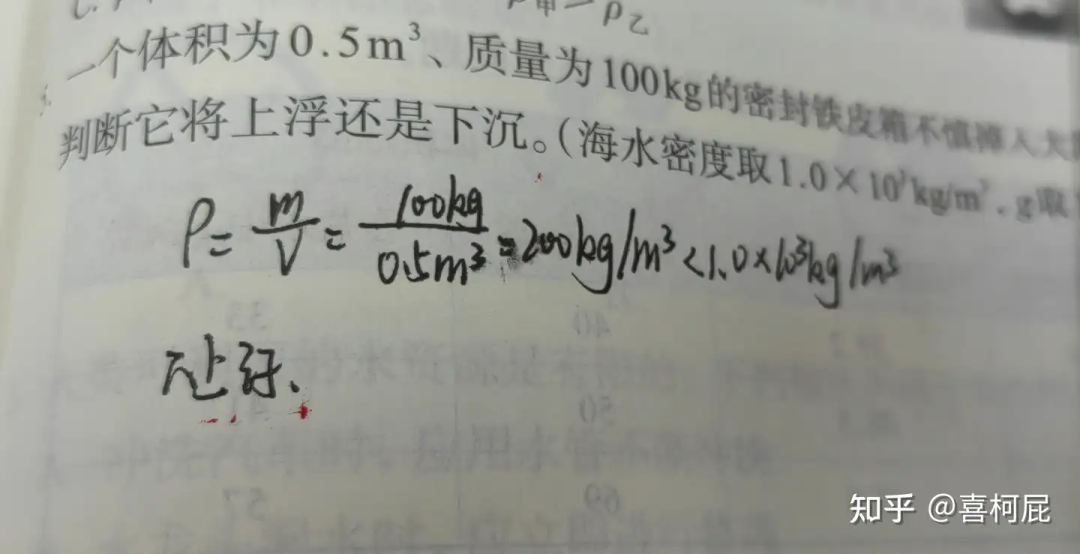 ρ甲=ρ乙
一个体积为0.5m³、质量为100kg的密封铁皮箱不慎掉入大
判断它将上浮还是下沉。(海水密度取1.0×10³kg/m³,g取
ρ=m/V=100kg/0.5m³=200kg/m³<1.0×10³kg/m³
上浮、
知乎 @喜柯屁